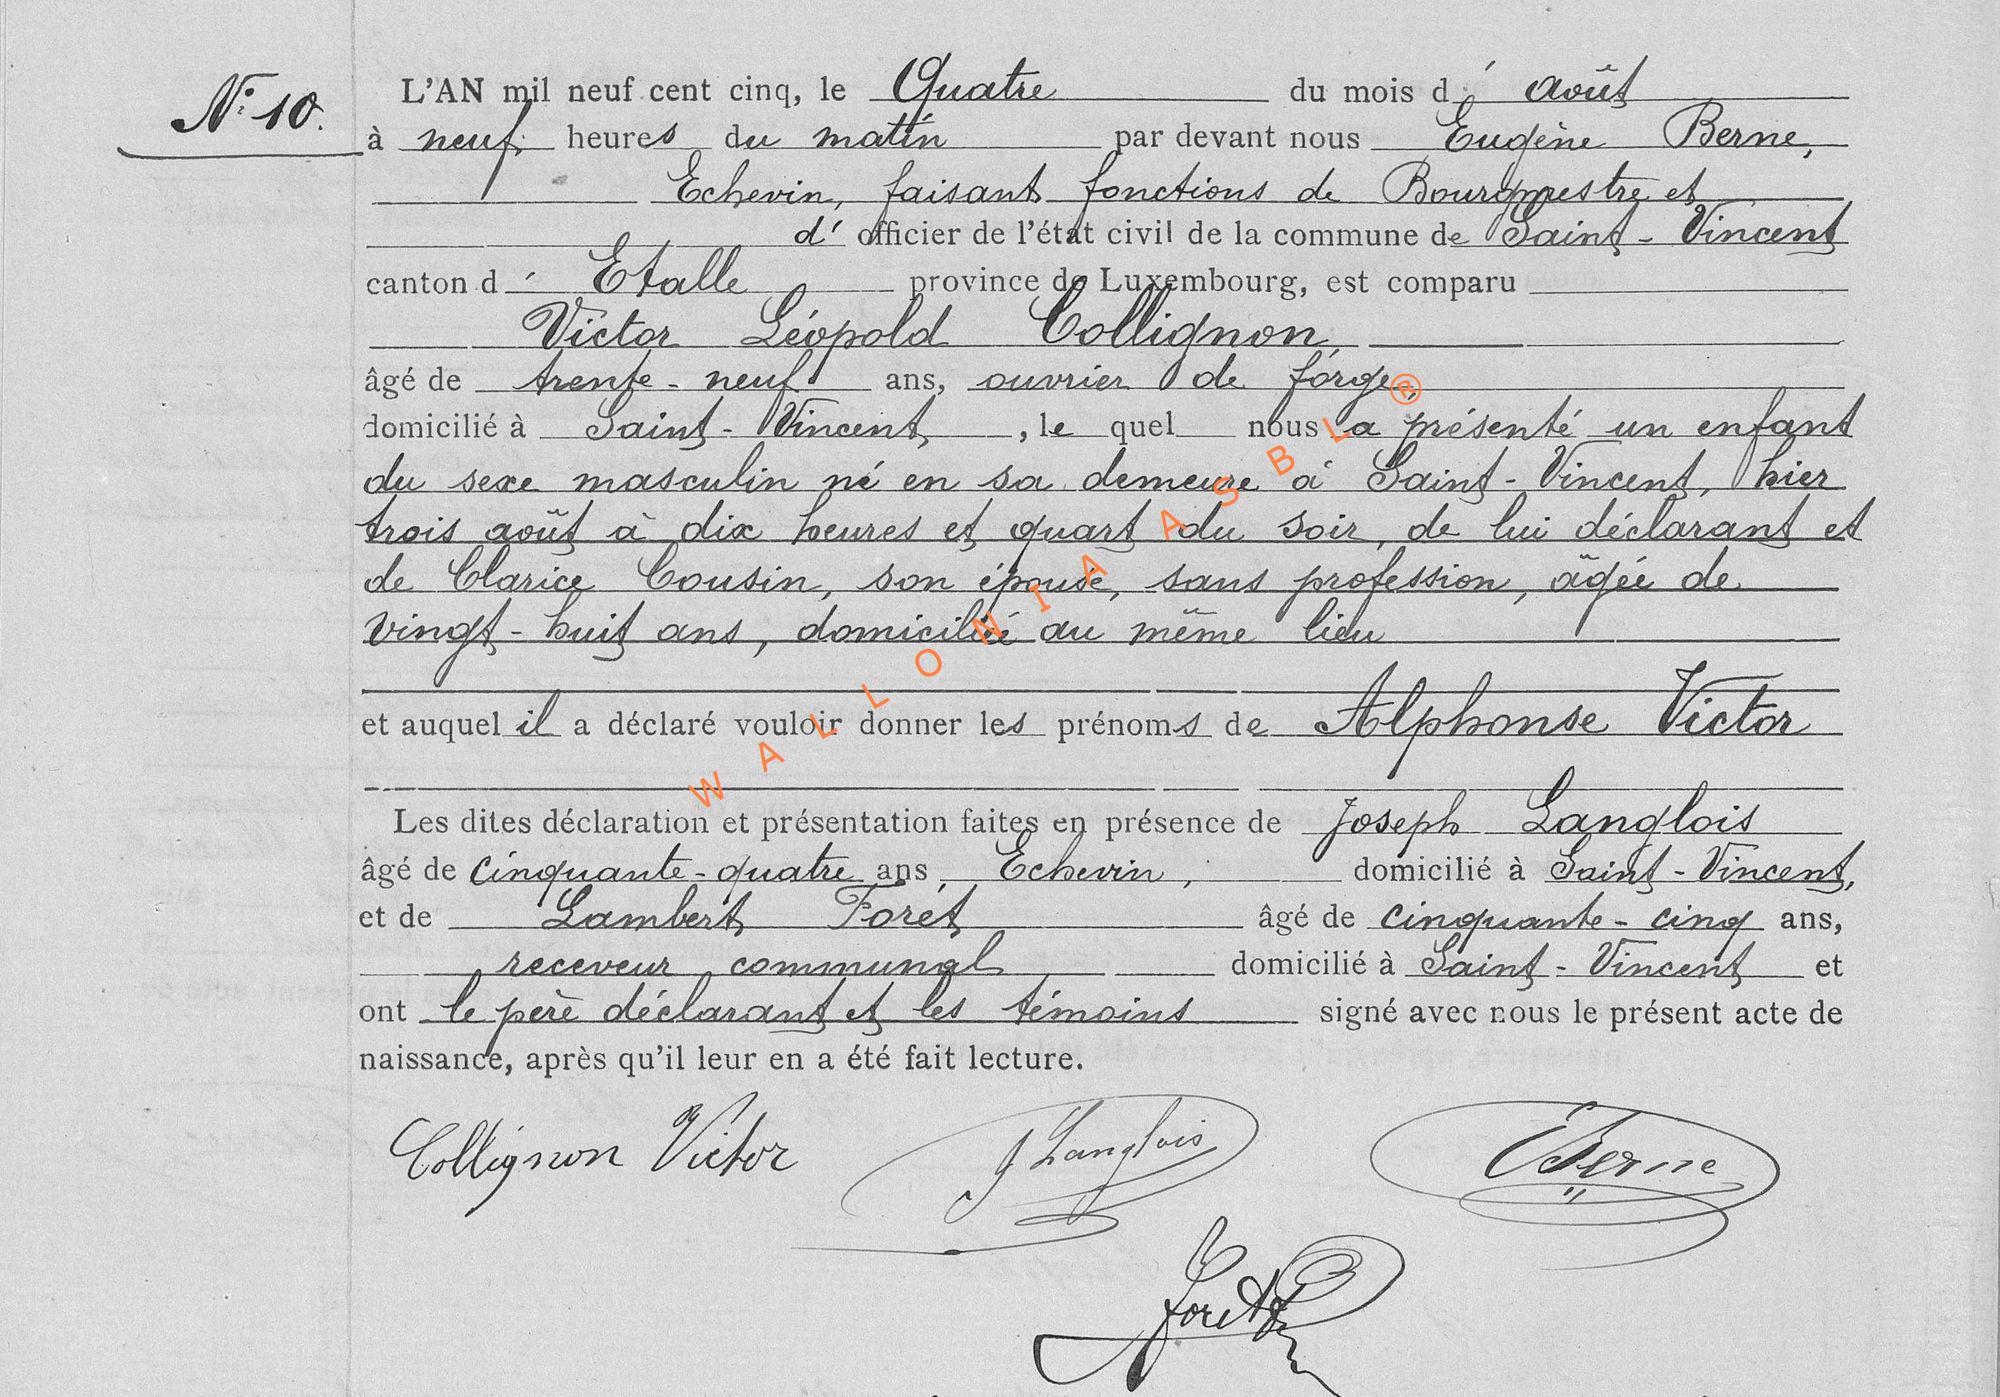 N° 10.
L'AN mil neuf cent cinq, le Quatre du mois d' août
à neuf heures du matin par devant nous Eugène Berne,
Echevin, faisant fonctions de Bourgmestre et
d' officier de l'état civil de la commune de Saint-Vincent
canton d' Etalle province de Luxembourg, est comparu
Victor Léopold Collignon,
âgé de trente-neuf ans, ouvrier de forge,
domicilié à Saint-Vincent, le quel nous a présenté un enfant
du sexe masculin né en sa demeure à Saint-Vincent, hier
trois août à dix heures et quart du soir, de lui déclarant et
de Clarice Cousin, son épouse, sans profession, âgée de
vingt-huit ans, domicilié au même lieu
et auquel il a déclaré vouloir donner les prénoms de Alphonse Victor
Les dites déclaration et présentation faites en présence de Joseph Langlois
âgé de cinquante-quatre ans, Echevin, domicilié à Saint-Vincent,
et de Lambert Foret âgé de cinquante-cinq ans,
receveur communal domicilié à Saint-Vincent et
ont le père déclarant et les témoins signé avec nous le présent acte de
naissance, après qu'il leur en a été fait lecture.
Collignon Victor J Langlois EBerne
Foret
WALLONIA ASBL ®